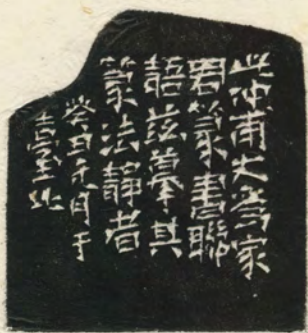 此仲甫丈為家
君篆書聯
語茲摹其
篆法靜者
癸丑元月于
臺北